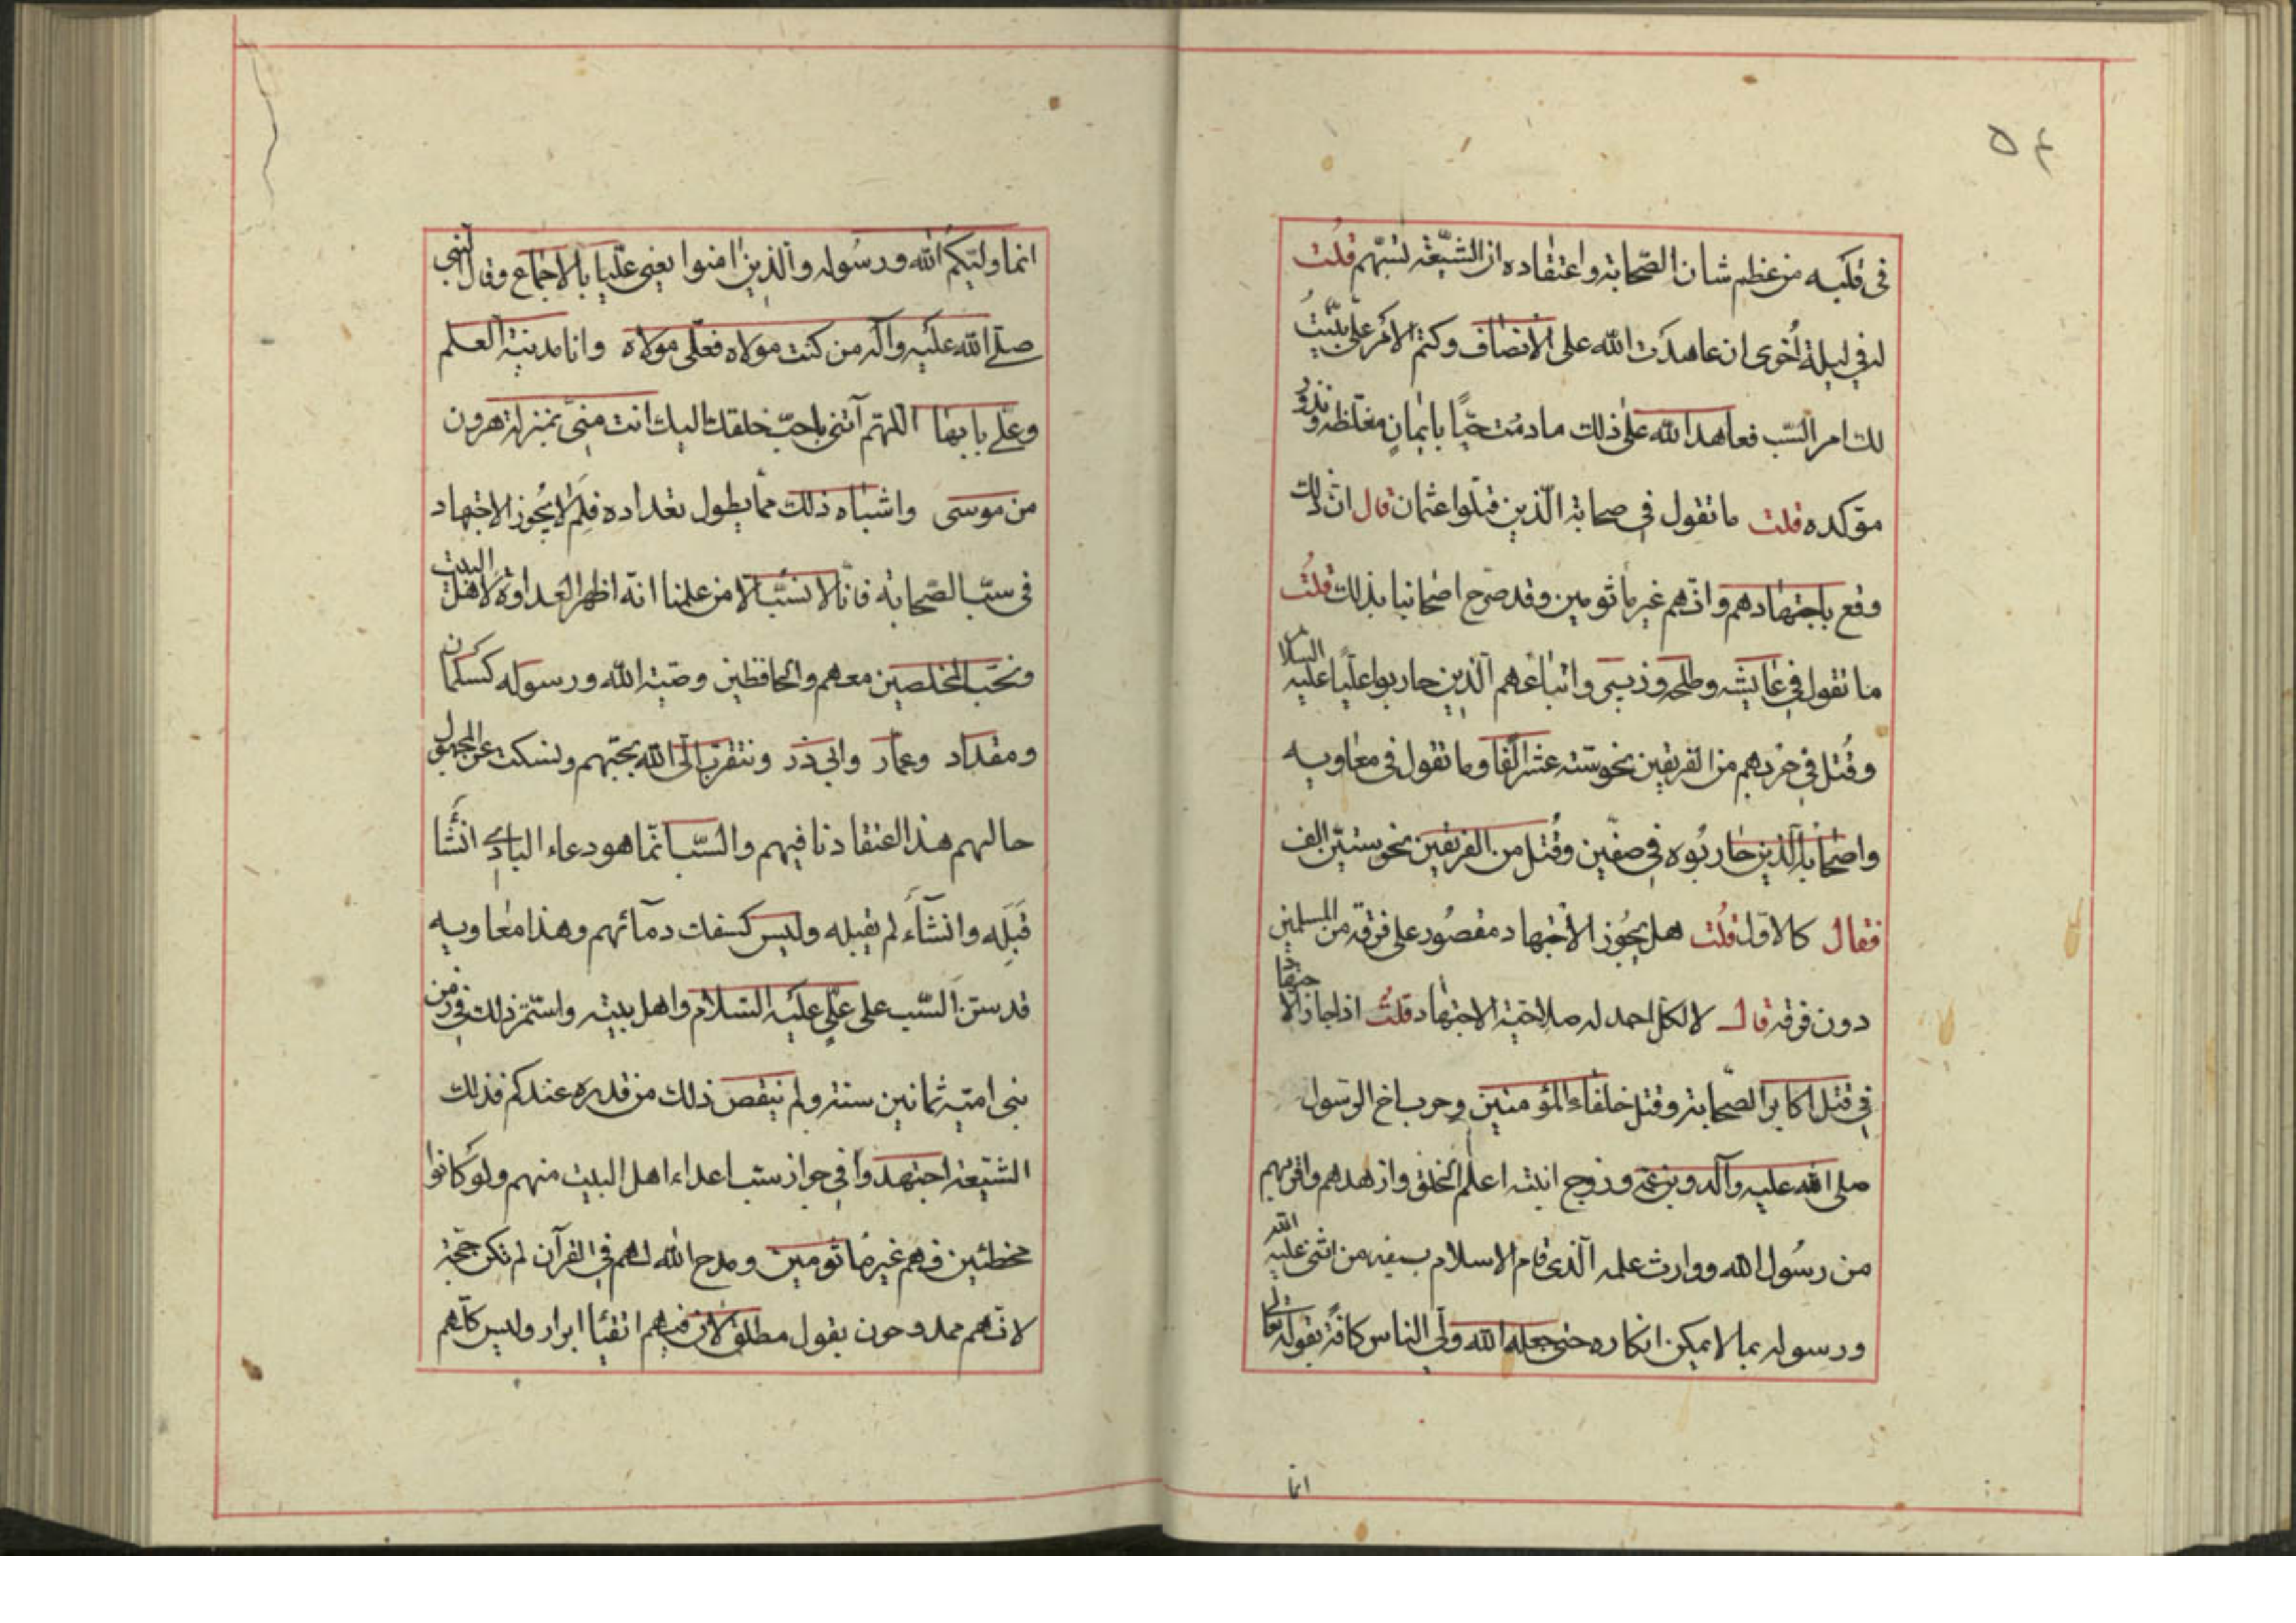 ٥٤
في قلبه من عظم شان الصّحابة واعتقاده ان الشيّعة تسبّهم قلت
له في ليلة اُخرى ان عاهدَت الله على الانصاف وكتم الامر علىّ بيّنتُ
لك امر السّب فعاهد الله على ذلك ما دمُت حيّاً بايمانٍ مغلّظه ونذور
مؤكده قلت ما تقول في صحابة الّذين قتلوا عثمان قال ان ذلك
وقع باجتهادهم وانّهم غير مأثومين وقد صرّح اصحابنا بذلك قلتُ
ما تقول في عايشه وطلحه وزبير واتباعهم الّذين حاربوا عليّاً عليه السلام
وقُتل في حربهم من الفريقين نحو ستّه عشر الفا وما تقول في معاويه
واصحابه الّذين حاربُوه في صفّين وقُتل من الفريقين نحو ستيّن الف
فقال كالاوّل قلُت هل يجُوز الاجتهاد مقصُور على فرقه من المسلمين
دون فرقه قال لا لكلّ احد له صلاحيّة الاجتهاد قلتُ اذا جاز الاجتهاد
في قتل اكابر الصّحابة وقتل خلفاء المؤمنين وحرب اخ الرّسول
صلى الله عليه وآله وبن عمّه وزوج ابنته اعلم الخلق وازهدهم واقربهم
من رسُول الله ووارث علمه الّذى قام الاسلام بسيفه من اثنى عليه الله
ورسوله بما لا يمكن انكاره حتى جعله الله ولّي الناس كافّة بقوله تعالى
انما
انما وليّكمُ الله ورسُوله والّذين امنوا يعنى عليّا بالاجماع وقال النبى
صلّى الله عليه وآله من كنت مولاه فعلّى مولاه وانا مدينة العلم
وعلّى بابها اللّهم آتنى باحبّ خلقك اليك انت منىّ بمنزلة هرون
من موسى واشباه ذلك ممّا يطول تعداده فلِمَ لا يجُوز الاجتهاد
في سبّ الصّحابة فانّا لا نسبّ الا من علمنا انّه اظهر العداوة لاهل البيت
ونحّب المخلصين معهم والحافظين وصيّة الله ورسوله كسلمان
ومقداد وعمّار وابى ذر ونتقرّب الى الله بحبّهم ونسكت عن المجهول
حالهم هذا اعتقادنا فيهم والسّب انّما هو دعاء البارى انشَأ
قبَلِه وانشآءَ لم يقبله وليس كسفك دمآئهم وهذا معاويه
قد سنّ السّب على علّى عليه السّلام واهل بيته واستمرّ ذلك في زمن
بنى اميّه ثمانين سنة ولم ينقص ذلك من قدره عندكم فذلك
الشيّعة اجتهدوا في جواز سبّ اعداء اهل البيت منهم ولو كانوا
مخطئين فهم غير مأثومين ومدح الله لهم في القرآن لم تكن حجّة
لانّهم ممدوحون بقول مطلق لانّ فيهم اتقيا ابرار وليس كلّهم